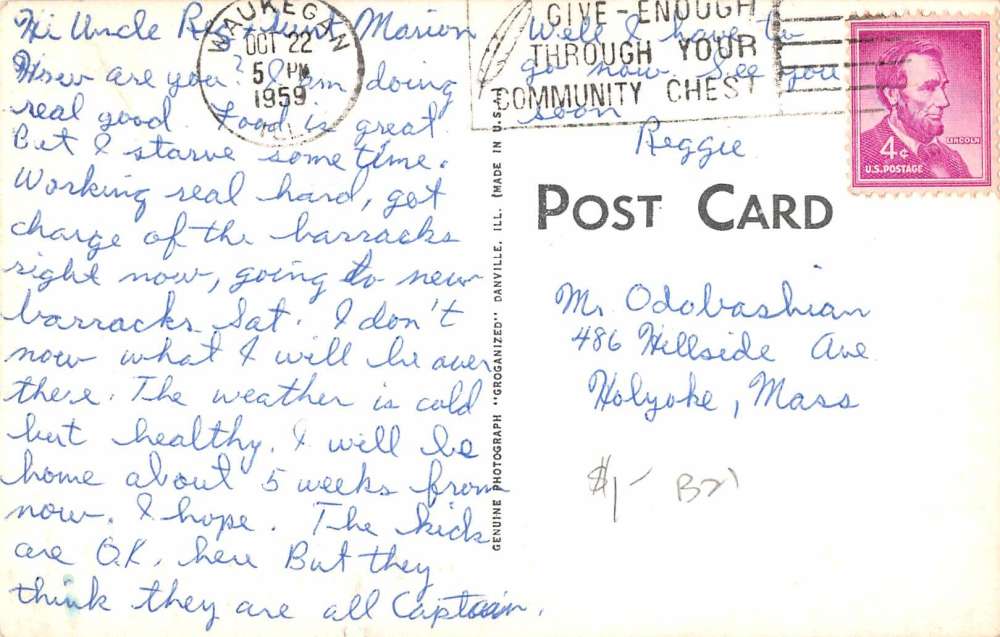 Hi Uncle Reg + Aunt Marion
How are you? I am doing
real good. Food is great
But I starve some time.
Working real hard, get
charge of the barracks
right now, going to new
barracks Sat. I don't
now what I will be over
there. The weather is cold
but healthy. I will be
home about 5 weeks from
now. I hope. The kids
are O.K. here But they
think they are all Captain.
Well I have to
go now. See you
soon
Reggie
WAUKEGAN
OCT 22
5 PM
1959
ILL.
GIVE-ENOUGH
THROUGH YOUR
COMMUNITY CHEST
LINCOLN
4¢
U.S. POSTAGE
GENUINE PHOTOGRAPH "GROGANIZED" DANVILLE, ILL. (MADE IN U.S.A.)
POST CARD
Mr Odobashian
486 Hillside Ave
Holyoke, Mass
$1-